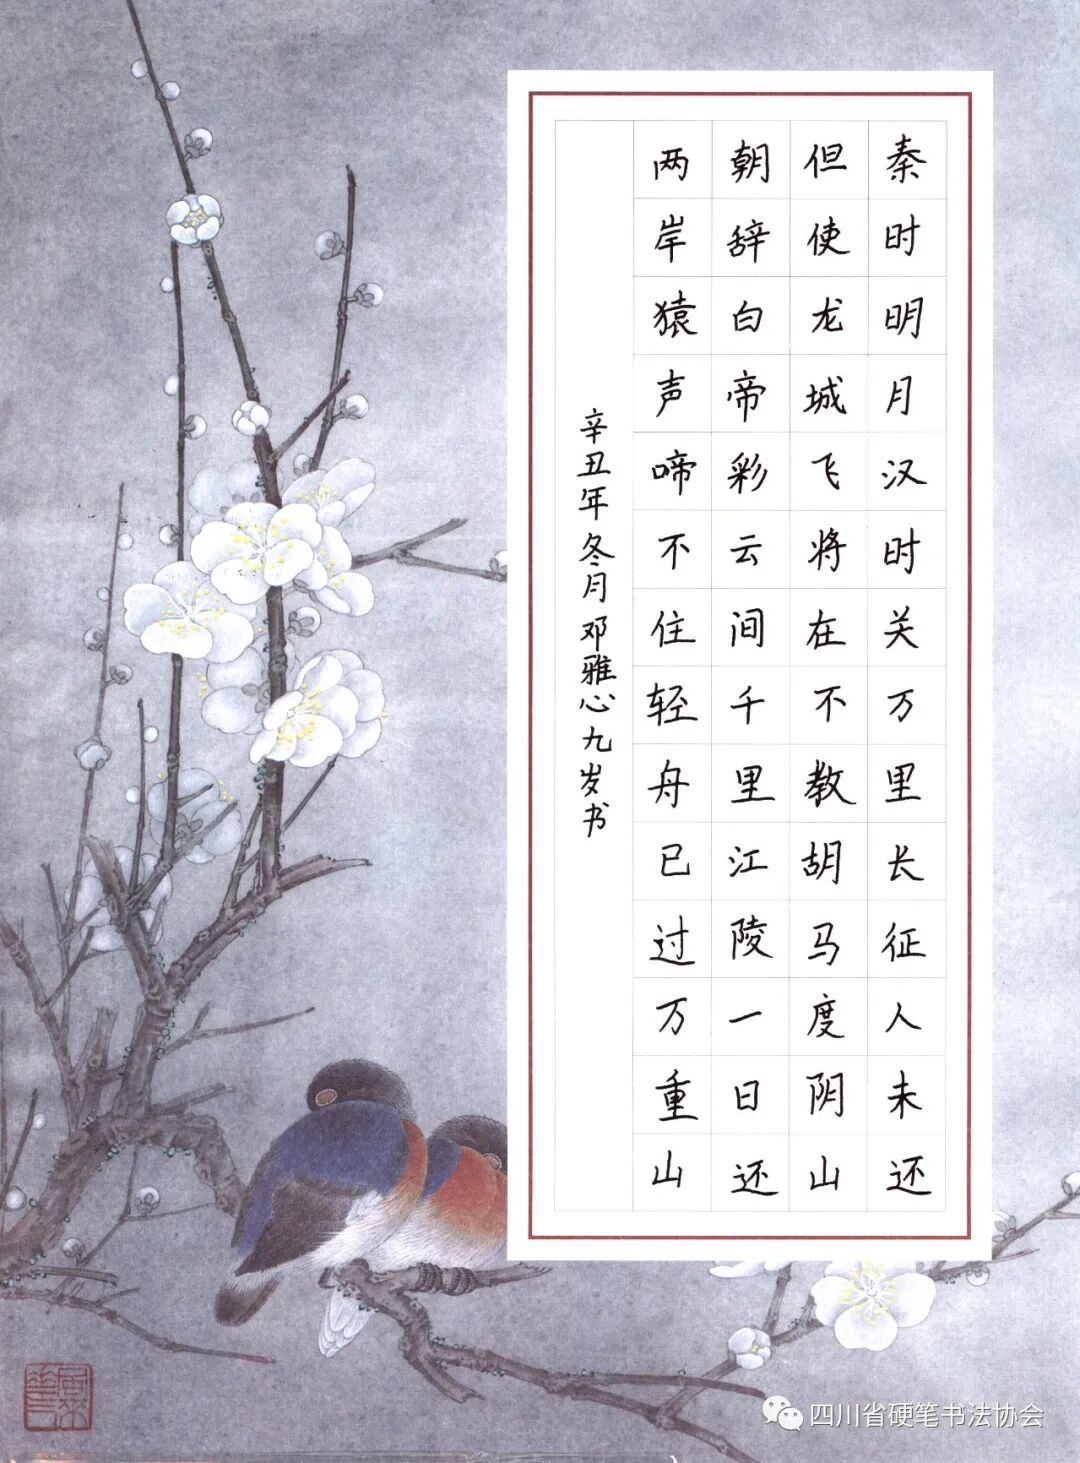 秦时明月汉时关万里长征人未还
但使龙城飞将在不教胡马度阴山
朝辞白帝彩云间千里江陵一日还
两岸猿声啼不住轻舟已过万重山
辛丑年冬月邓雅心九岁书
四川省硬笔书法协会